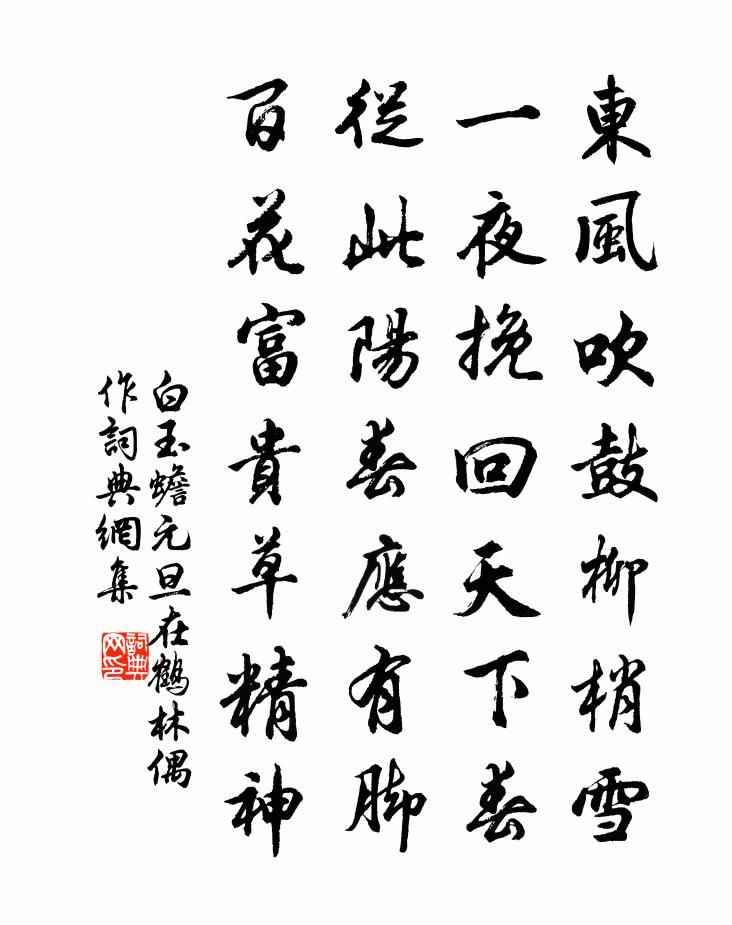 東風吹鼓柳梢雪
一夜挽回天下春
從此陽春應有脚
百花富貴草精神
白玉蟾元旦在鶴林偶
作詞典網集
詞典网印